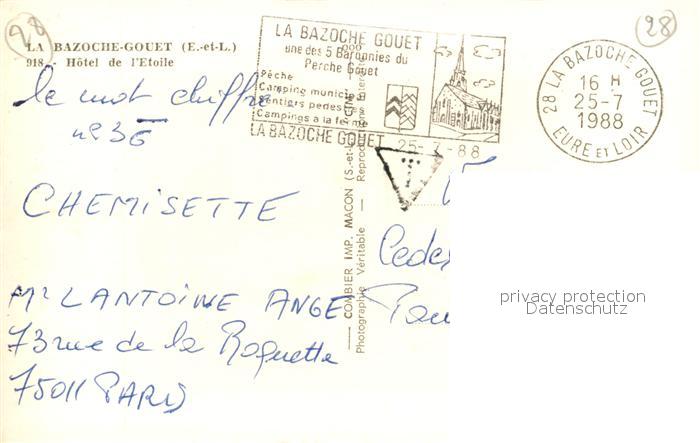 28
LA BAZOCHE-GOUET (E.-et-L.)
918 - Hôtel de l'Etoile
le mot chiffre
n° 36
CHEMISETTE
Mr LANTOINE ANGE
73 rue de la Roquette
75011 PARIS
LA BAZOCHE GOUET
une des 5 Baronnies du
Perche Gouet
Pêche
Camping municipal
Sentiers pedestres
Campings à la ferme
LA BAZOCHE GOUET 25-7-88
28
28 LA BAZOCHE GOUET
16 H
25-7
1988
EURE ET LOIR
T
COMBIER IMP. MACON (S.-et-L.)
Photographie Véritable — Reproduction
Cedex
privacy protection
Datenschutz